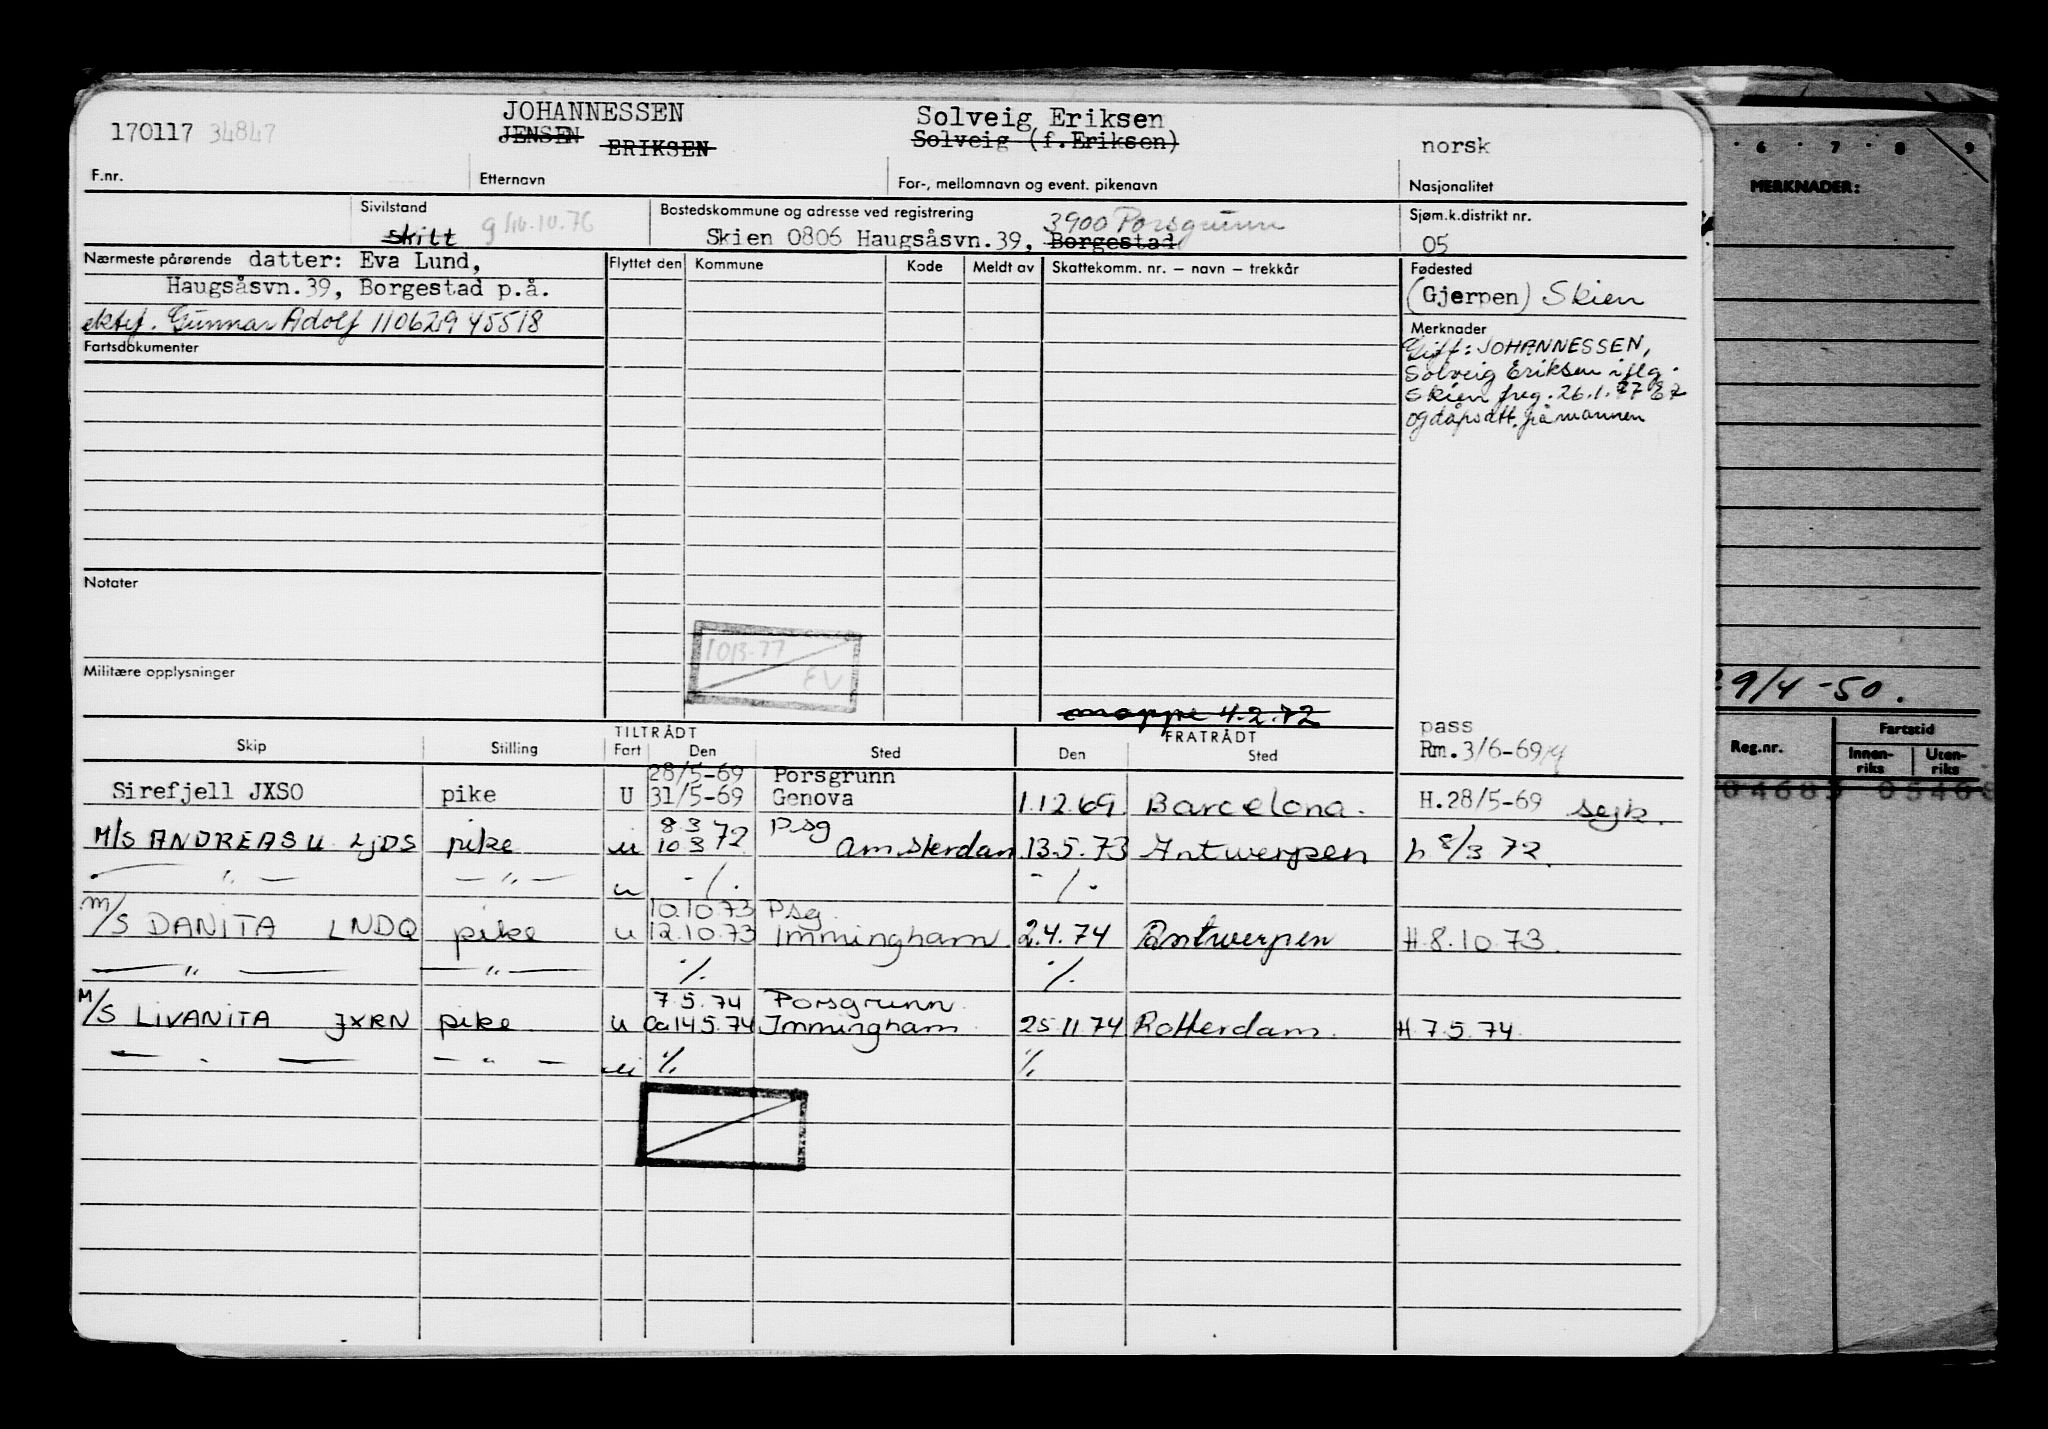 JOHANNESSEN Solveig Eriksen
170117 34847 JENSEN ERIKSEN Solveig (f.Eriksen) norsk
F.nr. Etternavn For-, mellomnavn og event. pikenavn Nasjonalitet
Sivilstand Bostedskommune og adresse ved registrering 3900 Porsgrunn Sjøm.k.distrikt nr.
skilt g 10.76 Skien 0806 Haugsåsvn.39, Borgestad 05
Nærmeste pårørende datter: Eva Lund, Flyttet den Kommune Kode Meldt av Skattekomm. nr. – navn – trekkår Fødested
Haugsåsvn.39, Borgestad p.å. (Gjerpen) Skien
ektef. Gunnar Adolf 110629 45518 Merknader
Fartsdokumenter Gift: JOHANNESSEN,
Solveig Eriksen iflg.
Skien freg. 26.1.77
og dåpsatt. på mannen
Notater
1013-77
EV
Militære opplysninger
mappe 4.2.72
TILTRÅDT FRATRÅDT pass
Skip Stilling Fart Den Sted Den Sted Rm.3/6-69
28/5-69 Porsgrunn
Sirefjell JXSO pike U 31/5-69 Genova 1.12.69. Barcelona. H.28/5-69 sejk.
8.3 Psg
M/S ANDREAS U LJDS pike u 10.3 72 Amsterdam 13.5.73 Antwerpen h 8/3 72.
— " — — " — u -/. -/.
10.10.73 Psg.
M/S DANITA LNDQ pike u 12.10.73 Immingham. 2.4.74 Antwerpen H.8.10.73.
— " — — " — ·/. ·/.
7.5.74 Porsgrunn.
M/S LIVANITA JXRN pike u Ca 14.5.74 Immingham 25.11.74 Rotterdam. H 7.5.74.
— " — — " — u ·/. ·/.
6 · 7 · 8 9
MERKNADER:
29/4 -50.
Reg.nr. Fartstid
Innenriks Utenriks